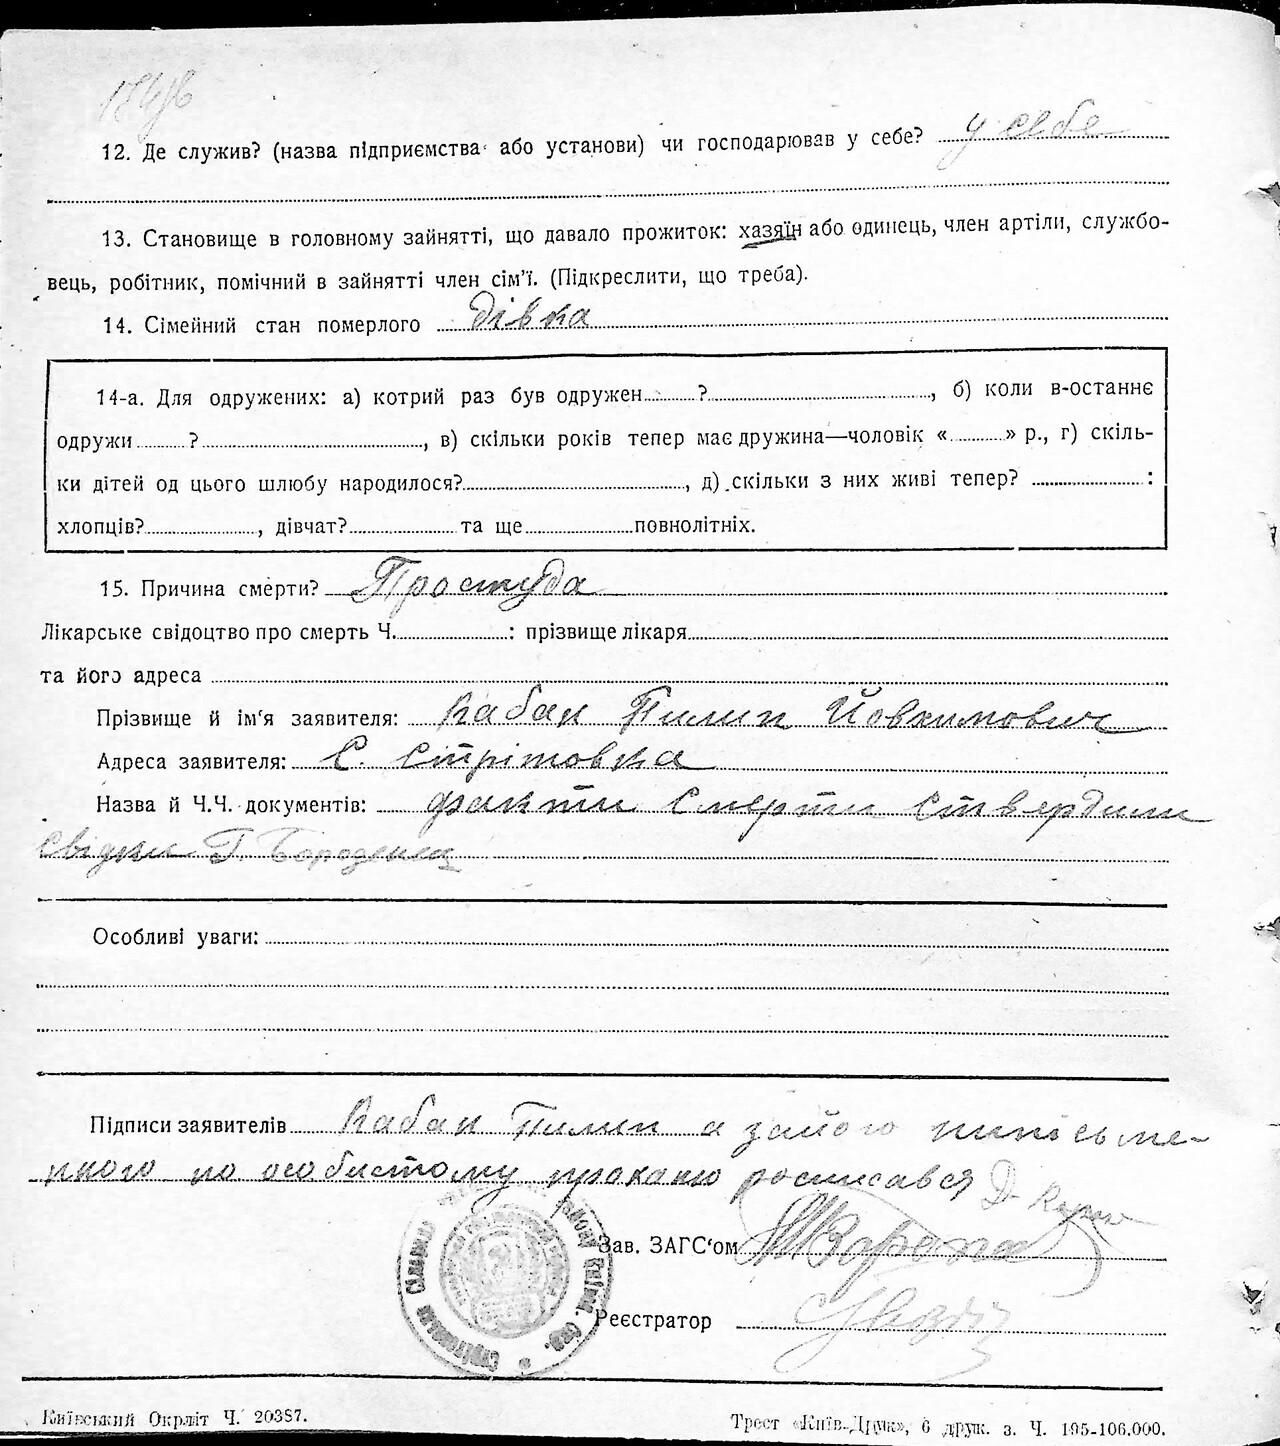 12. Де служив? (назва підприємства або установи) чи господарював у себе? у себе
13. Становище в головному зайнятті, що давало прожиток: хазяїн або одинець, член артіли, службо-
вець, робітник, помічний в зайнятті член сім'ї. (Підкреслити, що треба).
14. Сімейний стан померлого дівка
14-а. Для одружених: а) котрий раз був одружен ? , б) коли в-останнє
одружи ? , в) скільки років тепер має дружина—чоловік « » р., г) скіль-
ки дітей од цього шлюбу народилося? , д) скільки з них живі тепер? :
хлопців? , дівчат? та ще повнолітніх.
15. Причина смерти? Простуда
Лікарське свідоцтво про смерть Ч. : прізвище лікаря
та його адреса
Прізвище й ім'я заявителя: Кабак Пилип Йовхимович
Адреса заявителя: С. Стрітовка
Назва й Ч.Ч. документів: факти смерти ствердили
свідки Г. Бороденец
Особливі уваги:
Підписи заявителів Кабак Пилип а за його нипісьме-
нного по особистому проханю росписався Д.
Зав. ЗАГС'ом
Реєстратор
Київський Окрліт Ч. 20387.
Трест «Київ-Друк», 6 друк. з. Ч. 195-106.000.